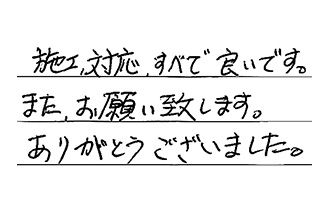 施工、対応、すべて良いです。
また、お願い致します。
ありがとうございました。